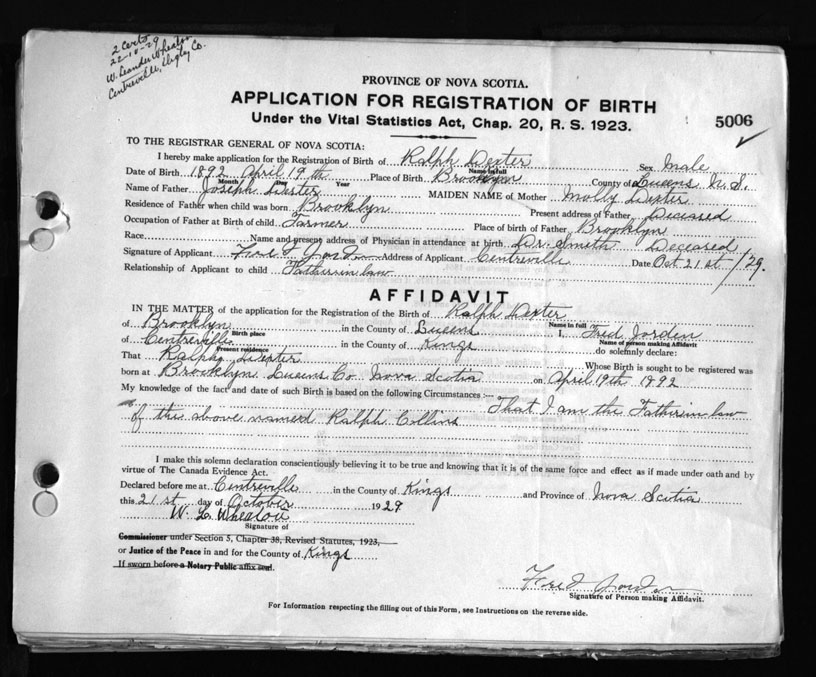 2 Certs
22-10-29
W. Leander Wheaton
Centreville, Digby Co.
PROVINCE OF NOVA SCOTIA.
APPLICATION FOR REGISTRATION OF BIRTH
5006
Under the Vital Statistics Act, Chap. 20, R. S. 1923.
TO THE REGISTRAR GENERAL OF NOVA SCOTIA:
I hereby make application for the Registration of Birth of Ralph Dexter Sex Male
Name in full
Date of Birth 1892 April 19th Place of Birth Brooklyn County of Queens N.S.
Month Day Year
Name of Father Joseph Dexter MAIDEN NAME of Mother Molly Dexter
Residence of Father when child was born Brooklyn Present address of Father Deceased
Occupation of Father at Birth of child Farmer Place of birth of Father Brooklyn
Race Name and present address of Physician in attendance at birth Dr. Smeth Deceased
Signature of Applicant Fred Jorden Address of Applicant Centreville Date Oct 21st /29.
Relationship of Applicant to child Father in law
AFFIDAVIT
IN THE MATTER of the application for the Registration of the Birth of Ralph Dexter
Name in full
of Brooklyn in the County of Queens I, Fred Jorden
Birth place Name of person making Affidavit
of Centreville in the County of Kings do solemnly declare:
Present residence
That Ralph Dexter Whose Birth is sought to be registered was
born at Brooklyn Queens Co Nova Scotia on April 19th 1892
My knowledge of the fact and date of such Birth is based on the following Circumstances :— That I am the Father in law
of the above named Ralph Collins
I make this solemn declaration conscientiously believing it to be true and knowing that it is of the same force and effect as if made under oath and by
virtue of The Canada Evidence Act.
Declared before me at Centreville in the County of Kings and Province of Nova Scotia
this 21st day of October 1929
W. L. Wheaton
Signature of
Commissioner under Section 5, Chapter 38, Revised Statutes, 1923,
or Justice of the Peace in and for the County of Kings
If sworn before a Notary Public affix seal.
Fred Jorden
Signature of Person making Affidavit.
For Information respecting the filling out of this Form, see Instructions on the reverse side.